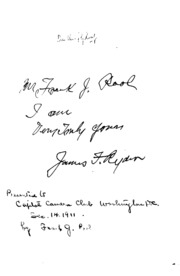 Mr Frank J.
I am
Very truly yours
James F. Ryder
Presented to
Capital Camera Club Washington D.C.
Dec. 14. 1911.
by Frank J.